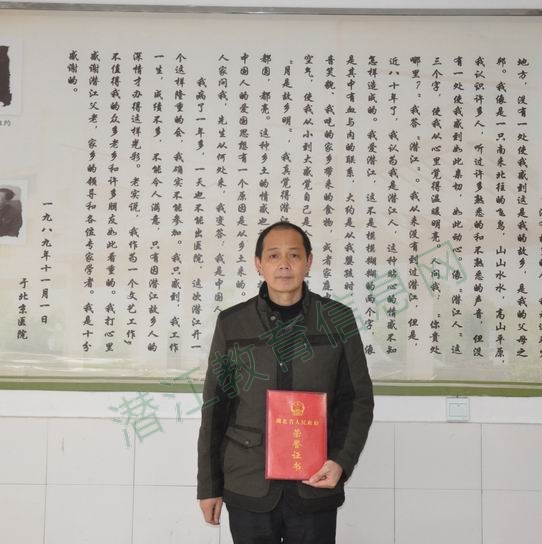 地方，没有一处使我感到这是我的故乡，是我的父母之
邦。我像是一只南来北往的飞鸟，山山水水，高山平原，
我认识许多人，听过许多熟悉的和不熟悉的声音，但没
有一处使我感到如此亲切，如此动心，像“潜江人”这
三个字，使我从心里觉得温暖明亮。人家问我：“你贵处
哪里？”，我答“潜江”。我从来没有到过潜江，但是，
近八十年了，我认为我是潜江人，这种的情感不知
怎样造成的。我爱“潜江”，这不是模模糊糊的两个字，像
是其中有血与肉的联系，大约是从我婴孩时
音笑貌、我吃的家乡带来的食物，或者家庭
空气，使我从小到大感觉自己是
“月是故乡明”，我真觉得潜
都圆，都亮。这种乡土的情感也
中国人的爱国思想有一个原因是从乡土来的。
人家问我，先生从何处来，我答，我是中国人
我病了一年多，一天也不能出医院，这次潜江开一
个这样隆重的会，我确实不能参加。我只感到，我工作
一生，成绩不多，不能令人满意，只有因潜江故乡人的
深情才办得这样光彩。老实说，我作为一个文艺工作
不值得我的众多老乡和许多朋友如此看重的。我打心里
感谢潜江父老，家乡的领导和各位专家学者。我是十分
感谢的。
一九八九年十一月一日
于北京医院
湖北省人民政府
荣誉证书
潜江教育信息网